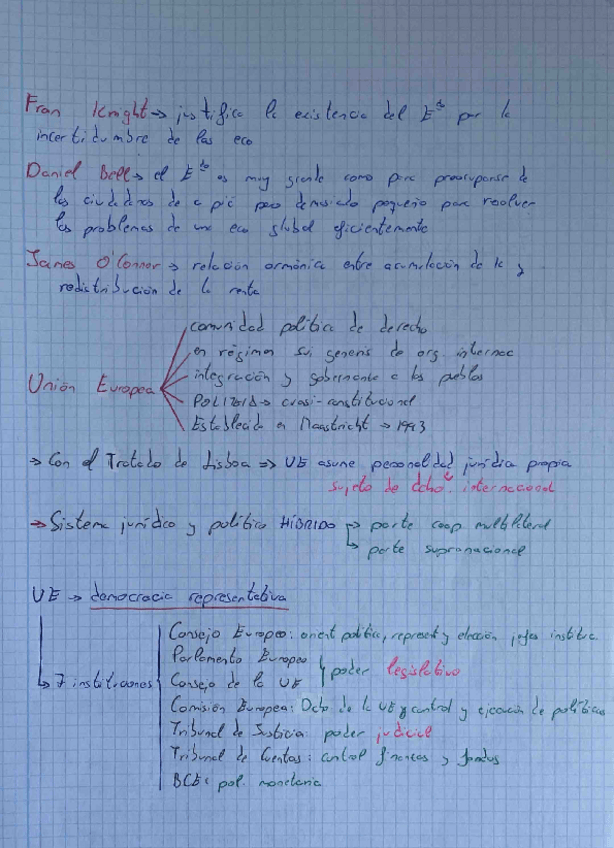 Fran Knight → justifica la existencia del Eᵈᵒ por la
incertidumbre de las eco
Daniel Bell → el Eᵈᵒ es muy grande como para preocuparse de
los ciudadanos de a pie pero demasiado pequeño para resolver
los problemas de una eco global eficientemente
James O'Connor → relación armónica entre acumulación de k y
redistribución de la renta
comunidad política de derecho
en régimen sui generis de org. internac
Unión Europea integración y gobernanza a los pueblos
POLITEIA → cuasi-constitucional
Establecida en Maastricht → 1993
→ Con el Tratado de Lisboa => UE asume personalidad jurídica propia
sujeto de dcho. internacional
→ Sistema jurídico y político HÍBRIDO → parte coop multilateral
↳ parte supranacional
UE → democracia representativa
Consejo Europeo: orient política, represent y elección jefes institu.
Parlamento Europeo
poder legislativo
↳ 7 instituciones Consejo de la UE
Comisión Europea: Dcho de la UE y control y ejecución de políticas
Tribunal de Justicia: poder judicial
Tribunal de Cuentas: control finanzas y fondos
BCE: pol. monetaria